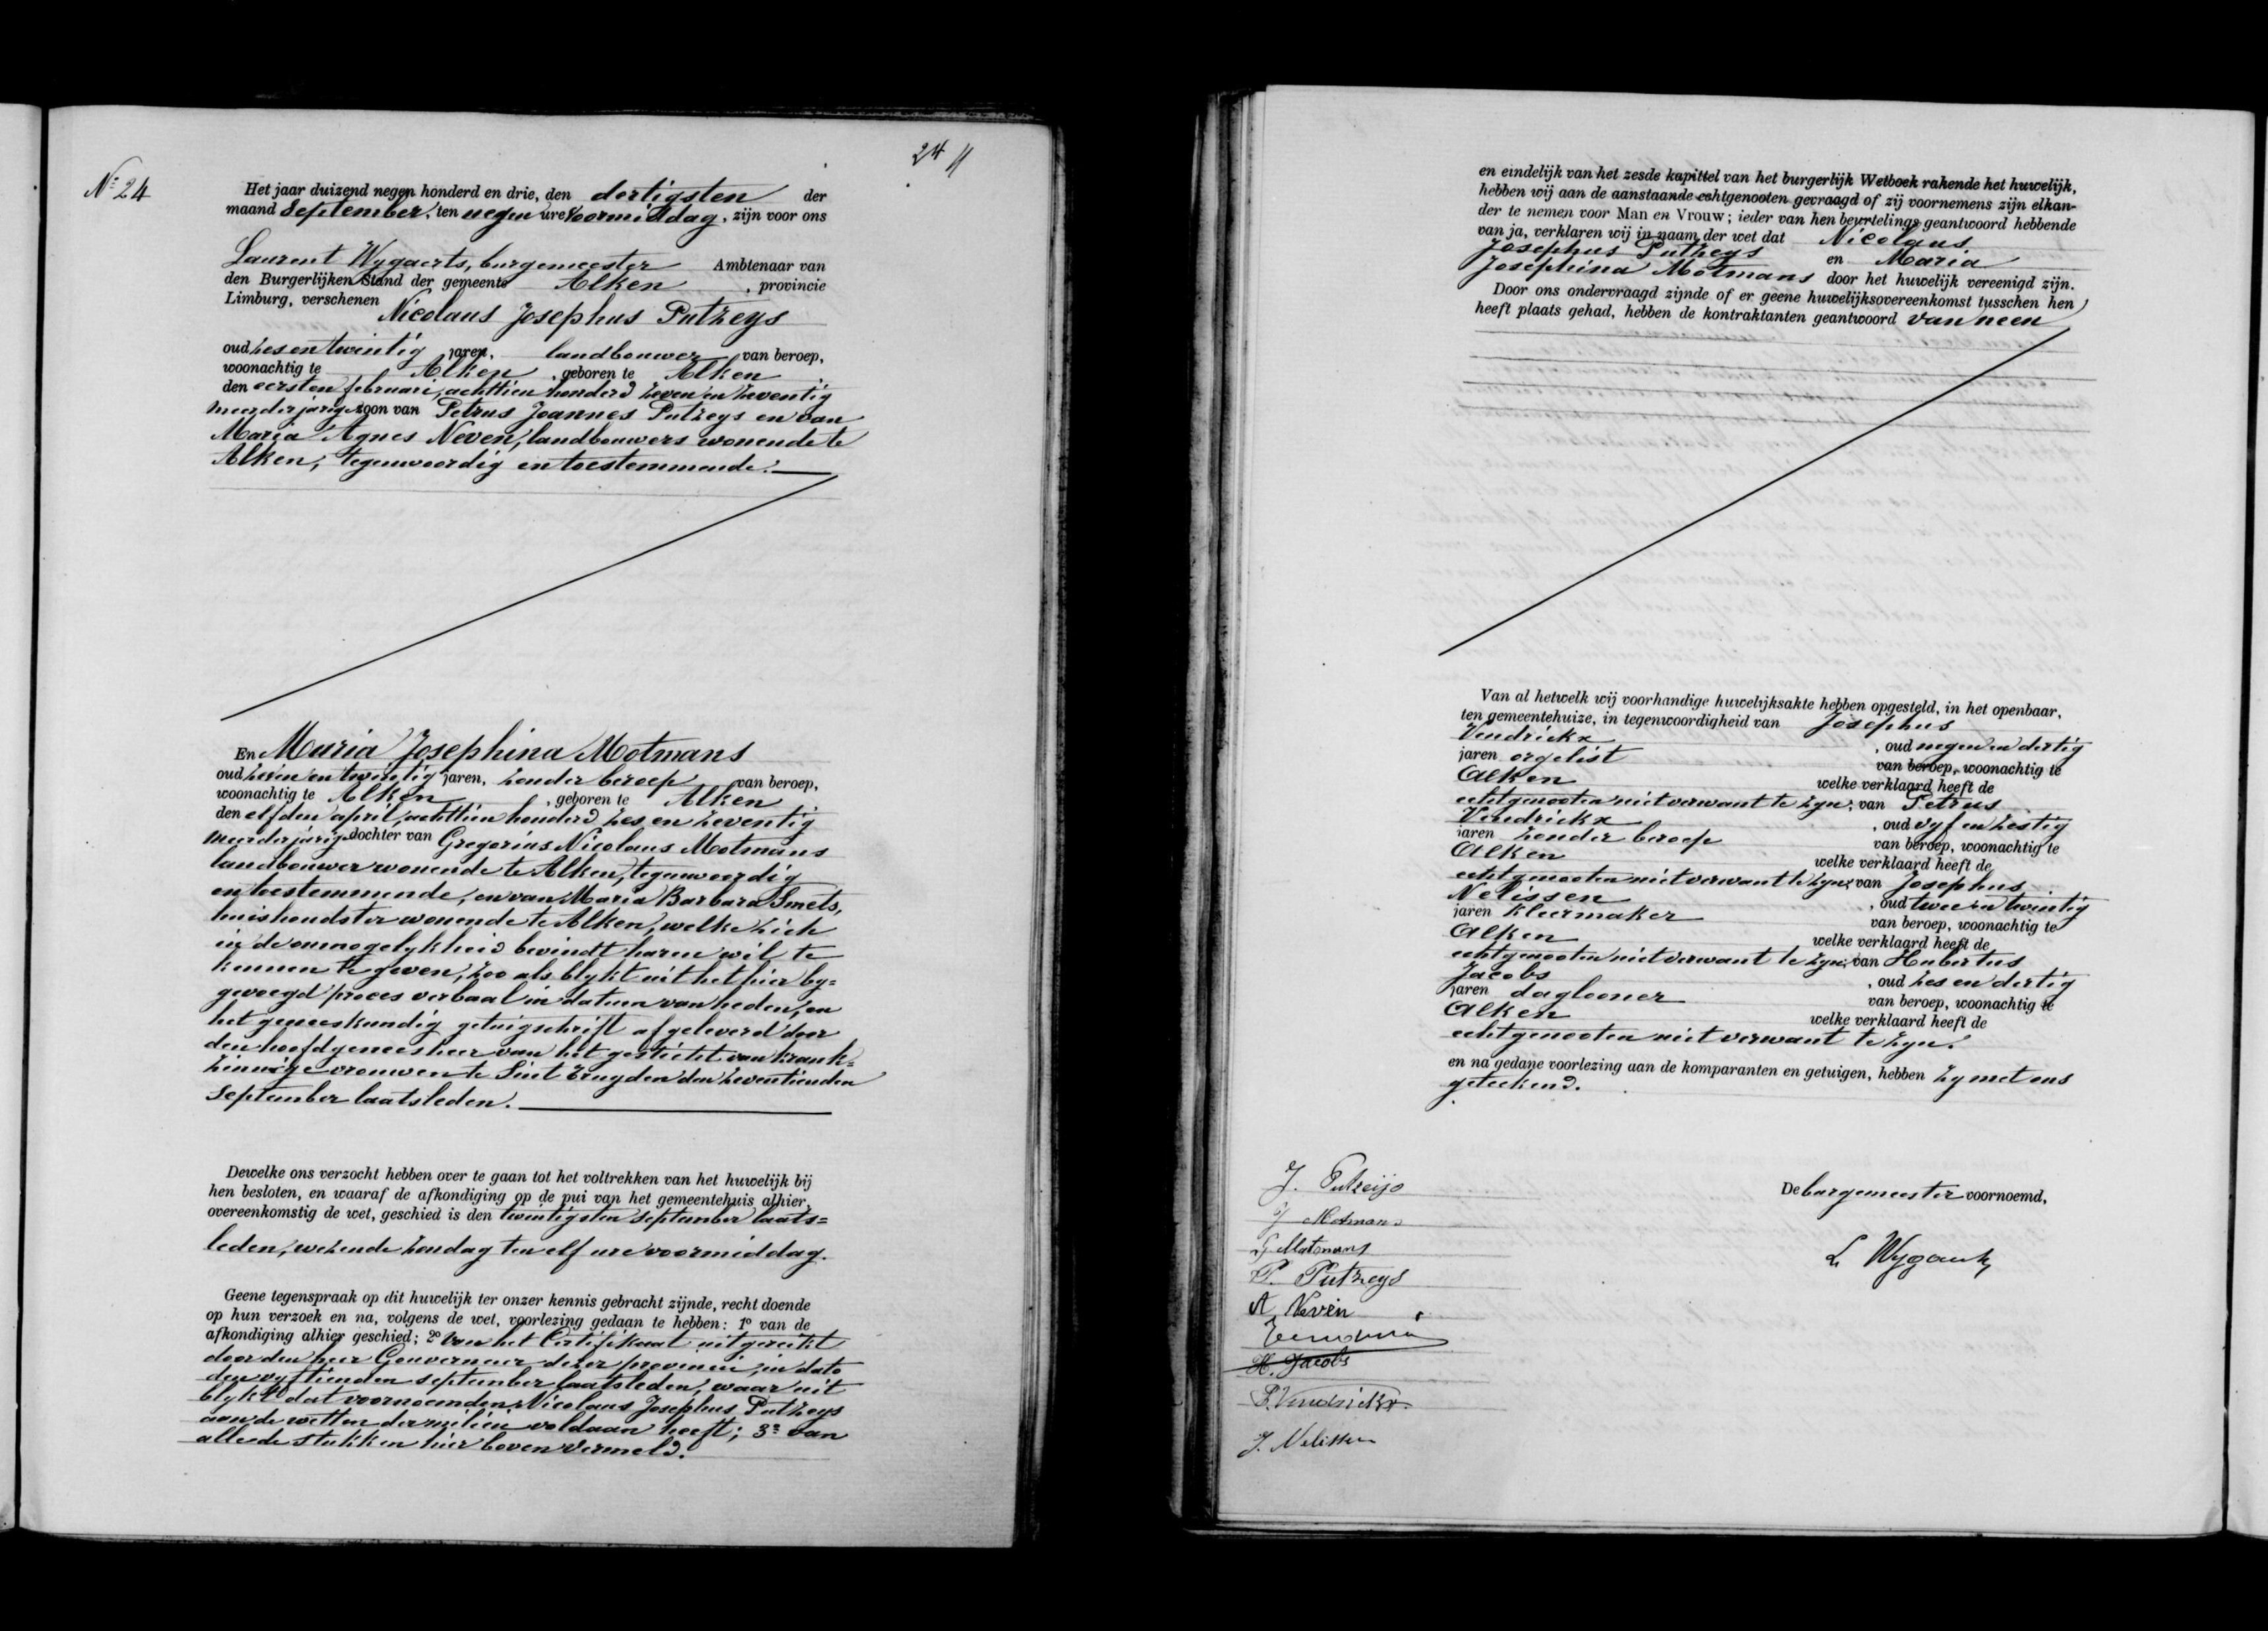 24
Nº 24
Het jaar duizend negen honderd en drie, den dertigsten der
maand September, ten negen ure voormiddag, zijn voor ons
Laurent Wygaerts, burgemeester Ambtenaar van
den Burgerlijken Stand der gemeente Alken, provincie
Limburg, verschenen
Nicolaus Josephus Putzeys
oud zes en twintig jaren, landbouwer van beroep,
woonachtig te Alken, geboren te Alken
den eersten februari, achttien honderd zeven en zeventig
meerderjarige zoon van Petrus Joannes Putzeys en van
Maria Agnes Neven, landbouwers wonende te
Alken, tegenwoordig en toestemmende.
En Maria Josephina Motmans
oud zeven en twintig jaren, zonder beroep van beroep,
woonachtig te Alken, geboren te Alken
den elfden april, achttien honderd zes en zeventig
meerderjarige dochter van Gregorius Nicolaus Motmans
landbouwer wonende te Alken, tegenwoordig
en toestemmende, en van Maria Barbara Smets,
huishoudster wonende te Alken, welke zich
in de onmogelykheid bevindt haren wil te
kennen te geven, zoo als blykt uit het hier by=
gevoegd proces verbaal in datum van heden, en
het geneeskundig getuigschrift afgeleverd door
den hoofdgeneesheer van het gesticht van krank=
zinnige vrouwen te Sint Truyden den zeventienden
September laatsleden.
Dewelke ons verzocht hebben over te gaan tot het voltrekken van het huwelijk bij
hen besloten, en waaraf de afkondiging op de pui van het gemeentehuis alhier,
overeenkomstig de wet, geschied is den twintigsten september laats=
leden, wezende zondag ten elf ure voormiddag.
Geene tegenspraak op dit huwelijk ter onzer kennis gebracht zijnde, recht doende
op hun verzoek en na, volgens de wet, voorlezing gedaan te hebben: 1º van de
afkondiging alhier geschied; 2º van het Certifikaat uitgereikt
door den heer Gouverneur dezer provincie, in dato
den vyftienden september laatsleden, waar uit
blykt dat voornoemden Nicolaus Josephus Putzeys
aan de wetten der milicie voldaan heeft; 3º van
alle de stukken hier boven vermeld.
en eindelijk van het zesde kapittel van het burgerlijk Wetboek rakende het huwelijk,
hebben wij aan de aanstaande echtgenooten gevraagd of zij voornemens zijn elkan-
der te nemen voor Man en Vrouw; ieder van hen beurtelings geantwoord hebbende
van ja, verklaren wij in naam der wet dat Nicolaus
Josephus Putzeys en Maria
Josephina Motmans door het huwelijk vereenigd zijn.
Door ons ondervraagd zijnde of er geene huwelijksovereenkomst tusschen hen
heeft plaats gehad, hebben de kontraktanten geantwoord van neen
Van al hetwelk wij voorhandige huwelijksakte hebben opgesteld, in het openbaar,
ten gemeentehuize, in tegenwoordigheid van Josephus
Vendrickx, oud negen en dertig
jaren orgelist van beroep, woonachtig te
Alken welke verklaard heeft de
echtgenooten niet verwant te zyn; van Petrus
Vendrickx, oud vyf en zestig
jaren zonder beroep van beroep, woonachtig te
Alken welke verklaard heeft de
echtgenooten niet verwant te zyn; van Josephus
Nelissen, oud twee en twintig
jaren kleermaker van beroep, woonachtig te
Alken welke verklaard heeft de
echtgenooten niet verwant te zyn; van Hubertus
Jacobs, oud zes en dertig
jaren daglooner van beroep, woonachtig te
Alken welke verklaard heeft de
echtgenooten niet verwant te zyn.
en na gedane voorlezing aan de komparanten en getuigen, hebben zy met ons
geteekend.
J. Putzeijs
J Motmans
G Motmans
P. Putzeys
A Neven
H. Jacobs
P. Vendrickx
J. Nelissen
De burgemeester voornoemd,
L Wygaerts